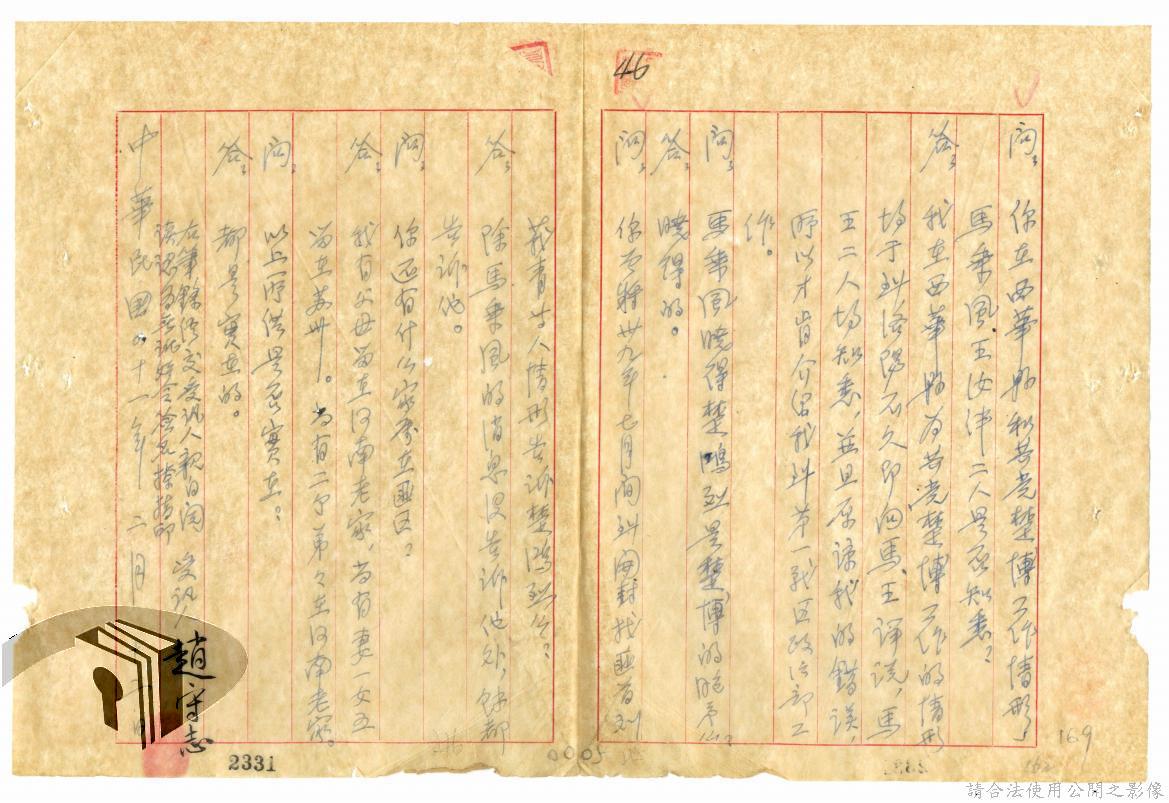 46
問：你在西華縣和共党楚博工作情形，
馬乘風、王汝泮二人是否知悉？
答：我在西華縣为共党楚博工作的情形
均于到洛陽不久即向馬、王詳说，馬
王二人均知悉，並且原諒我的錯误，
所以才肯介绍我到第一戰区政治部工
作。
問：馬乘風曉得楚鴻烈是楚博的胞弟么？
答：曉得的。
問：你曾將卅九年七月间到開封找匪首刘
青等人情形告訴楚鴻烈么？
答：除馬乘風的消息没告訴他外，餘都
告訴他。
問：你还有什么家屬在匪区？
答：我有父母留在河南老家，尚有妻一女五
留在苏州。尚有二个弟弟在河南老家。
問：以上所供是否實在？
答：都是實在的。
右筆錄經交受訊人親自閱
讀認為無訛
受訊人 趙守志
中華民国四十一年二月 日
2331
0005
169
162
請合法使用公開之影像